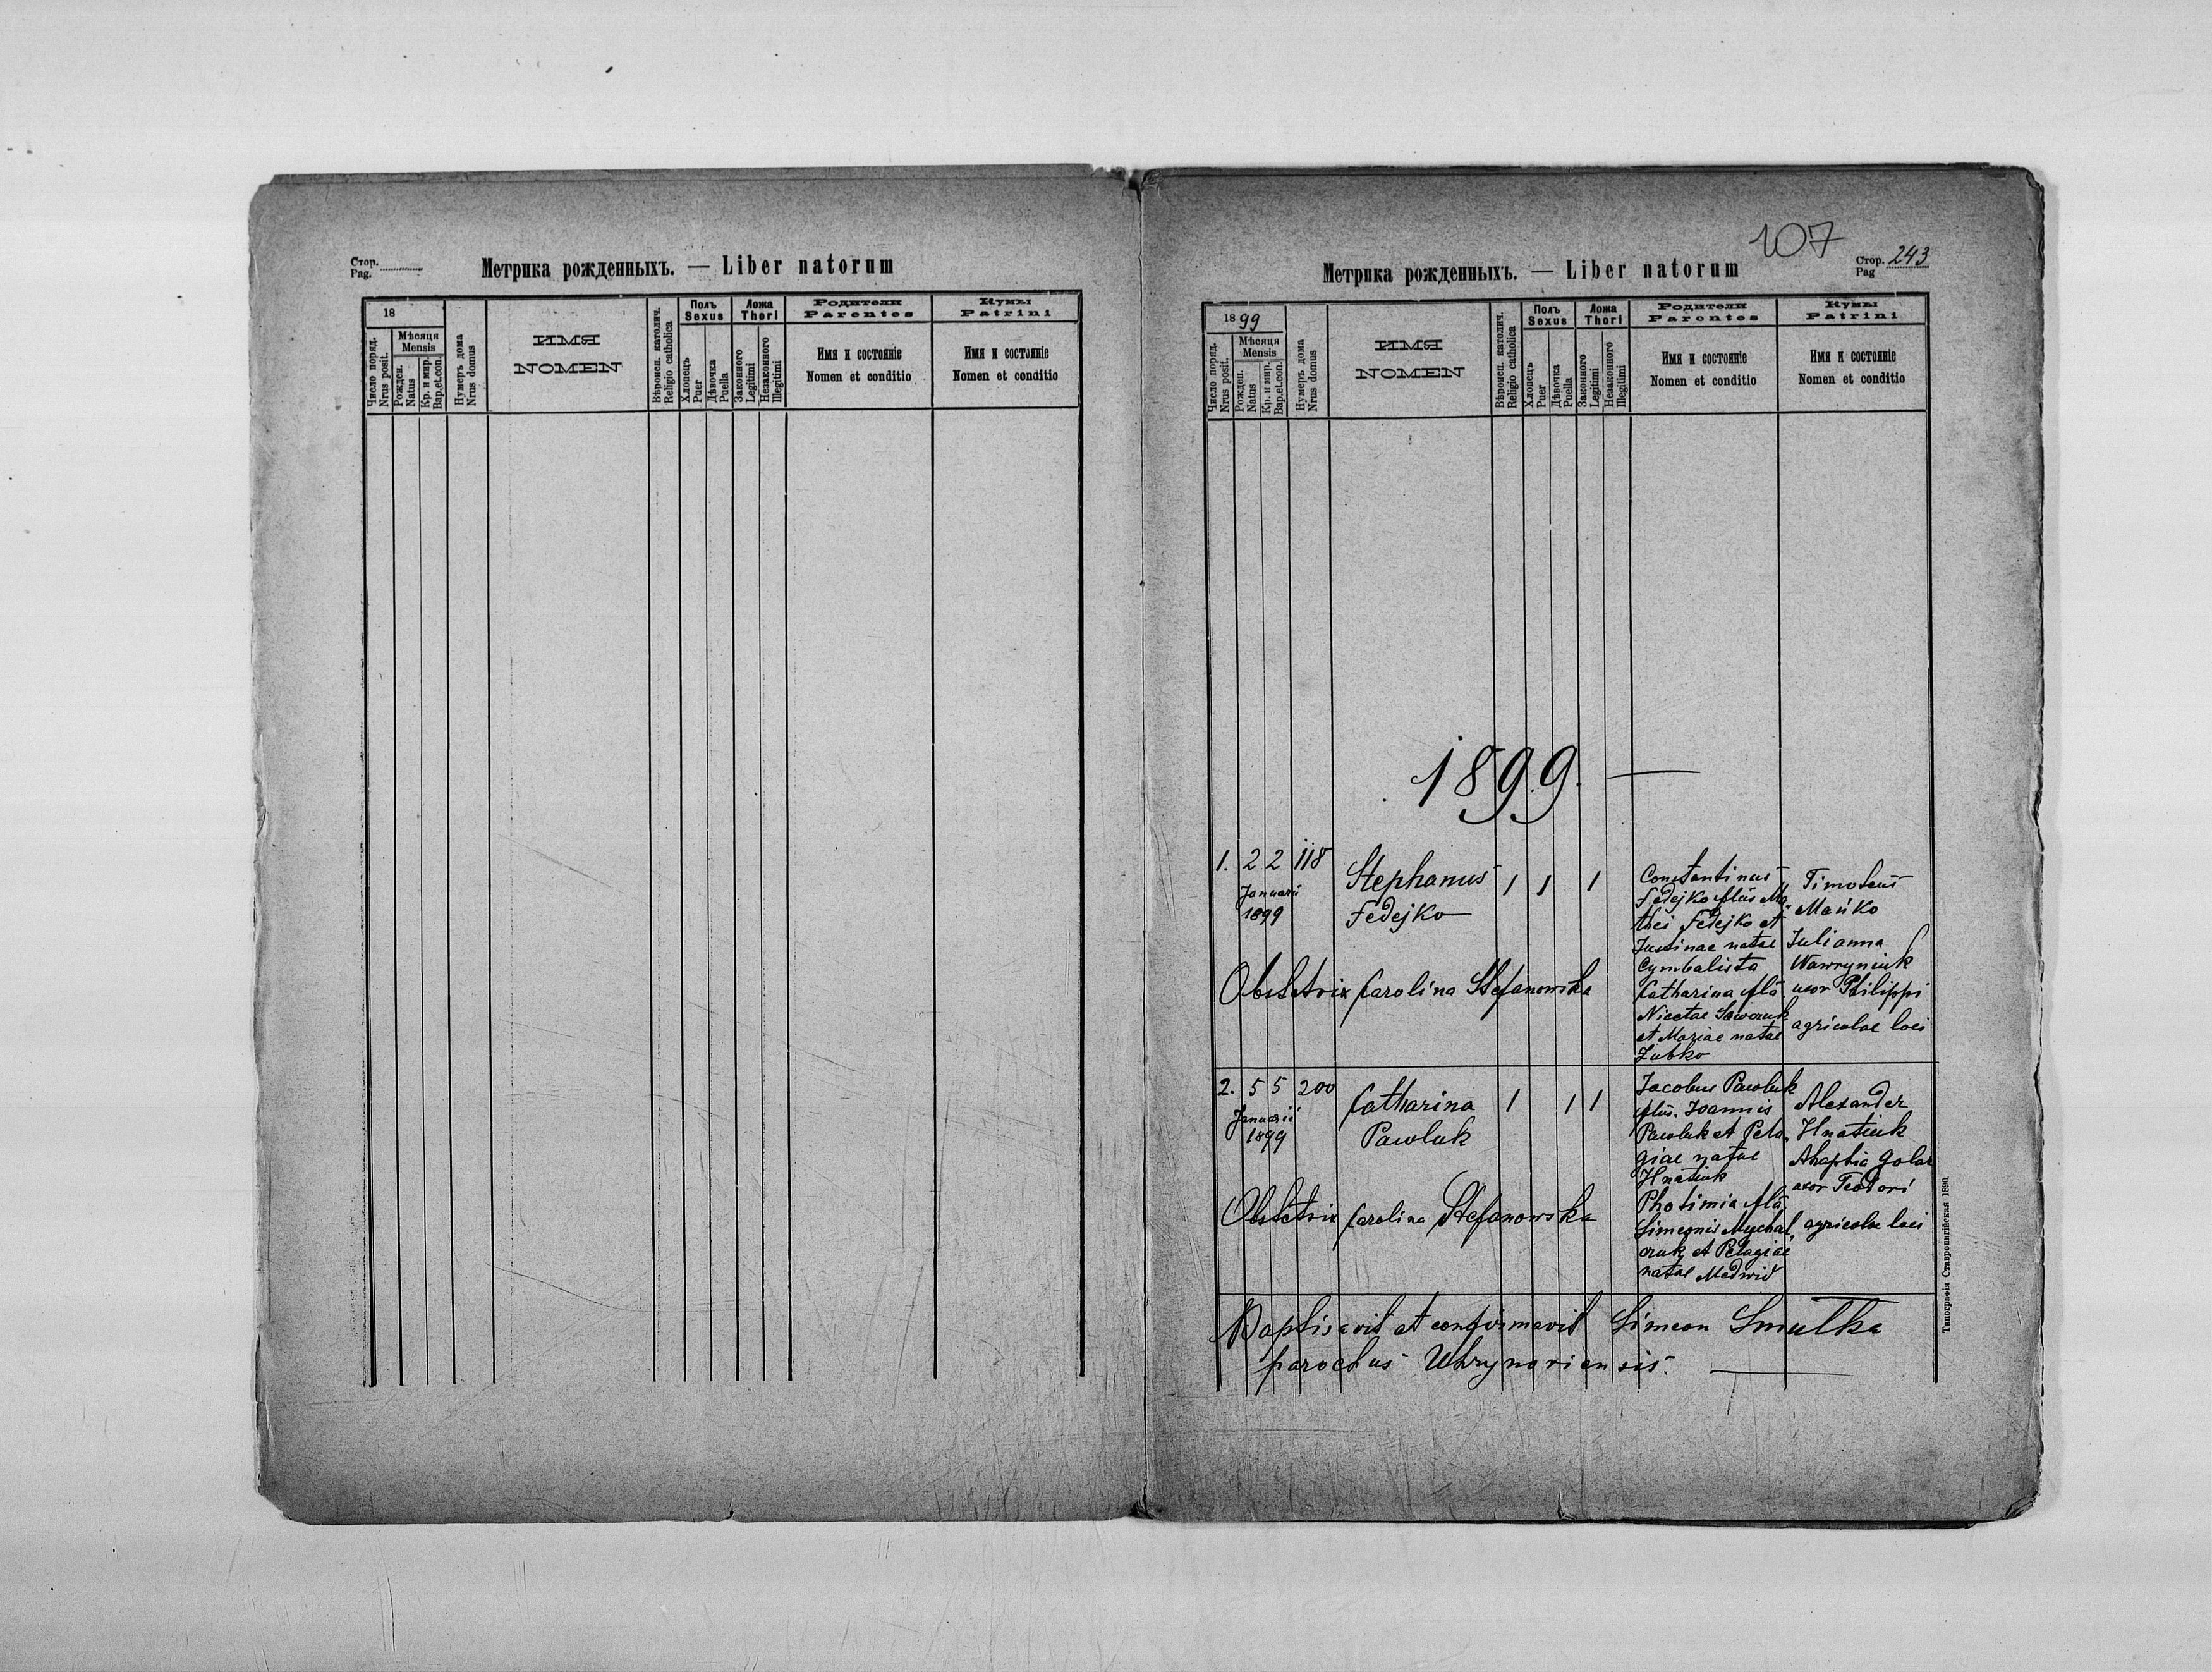 Стор.
Pag.
Метрика рожденныхъ. — Liber natorum
18
Мѣсяца
Mensis
Число поряд.
Nrus posit.
Рожден.
Natus
Кр. и мир.
Bap.et.con.
Нумеръ дома
Nrus domus
ИМЯ
NOMEN
Вѣроисп. католич.
Religio catholica
Полъ
Sexus
Хлопецъ
Puer
Дѣвочка
Puella
Ложа
Thori
Законного
Legitimi
Незаконного
Illegitimi
Родители
Parentes
Имя и состояніе
Nomen et conditio
Кумы
Patrini
Имя и состояніе
Nomen et conditio
107
Стор. 243
Pag
Метрика рожденныхъ. — Liber natorum
1899
Мѣсяца
Mensis
Число поряд.
Nrus posit.
Рожден.
Natus
Кр. и мир.
Bap.et.con.
Нумеръ дома
Nrus domus
ИМЯ
NOMEN
Вѣроисп. католич.
Religio catholica
Полъ
Sexus
Хлопецъ
Puer
Дѣвочка
Puella
Ложа
Thori
Законного
Legitimi
Незаконного
Illegitimi
Родители
Parentes
Имя и состояніе
Nomen et conditio
Кумы
Patrini
Имя и состояніе
Nomen et conditio
1899. —
1. 2 2 118
Januarii
1899
Stephanus
Fedejko
1 1 1
Constantinus
Fedejko filius Ma
thei Fedejko et
Justinae natae
Cymbalista
Catharina filia
Nicetae
et Mariae natae
Zubko
Timoteus
Mańko
Julianna
Wawryniuk
uxor Philippi
agricolae loci
Obstetrix Carolina Stefanowska
2. 5 5 200
Januarii
1899
Catharina
Pawluk
1 1 1
Jacobus Pawluk
filius Joannis
Pawluk et Pela
giae natae
Hnatiuk
Photimia filia
Simeonis Mychal
czuk et Pelagiae
natae Medwid
Alexander
Hnatiuk
Ahaphia
uxor Teodori
agricolae loci
Obstetrix Carolina Stefanowska
Baptisavit et confirmavit Simeon Smulka
parochus Uhrynoriensis. —
Типографія Ставропигійская 1890.